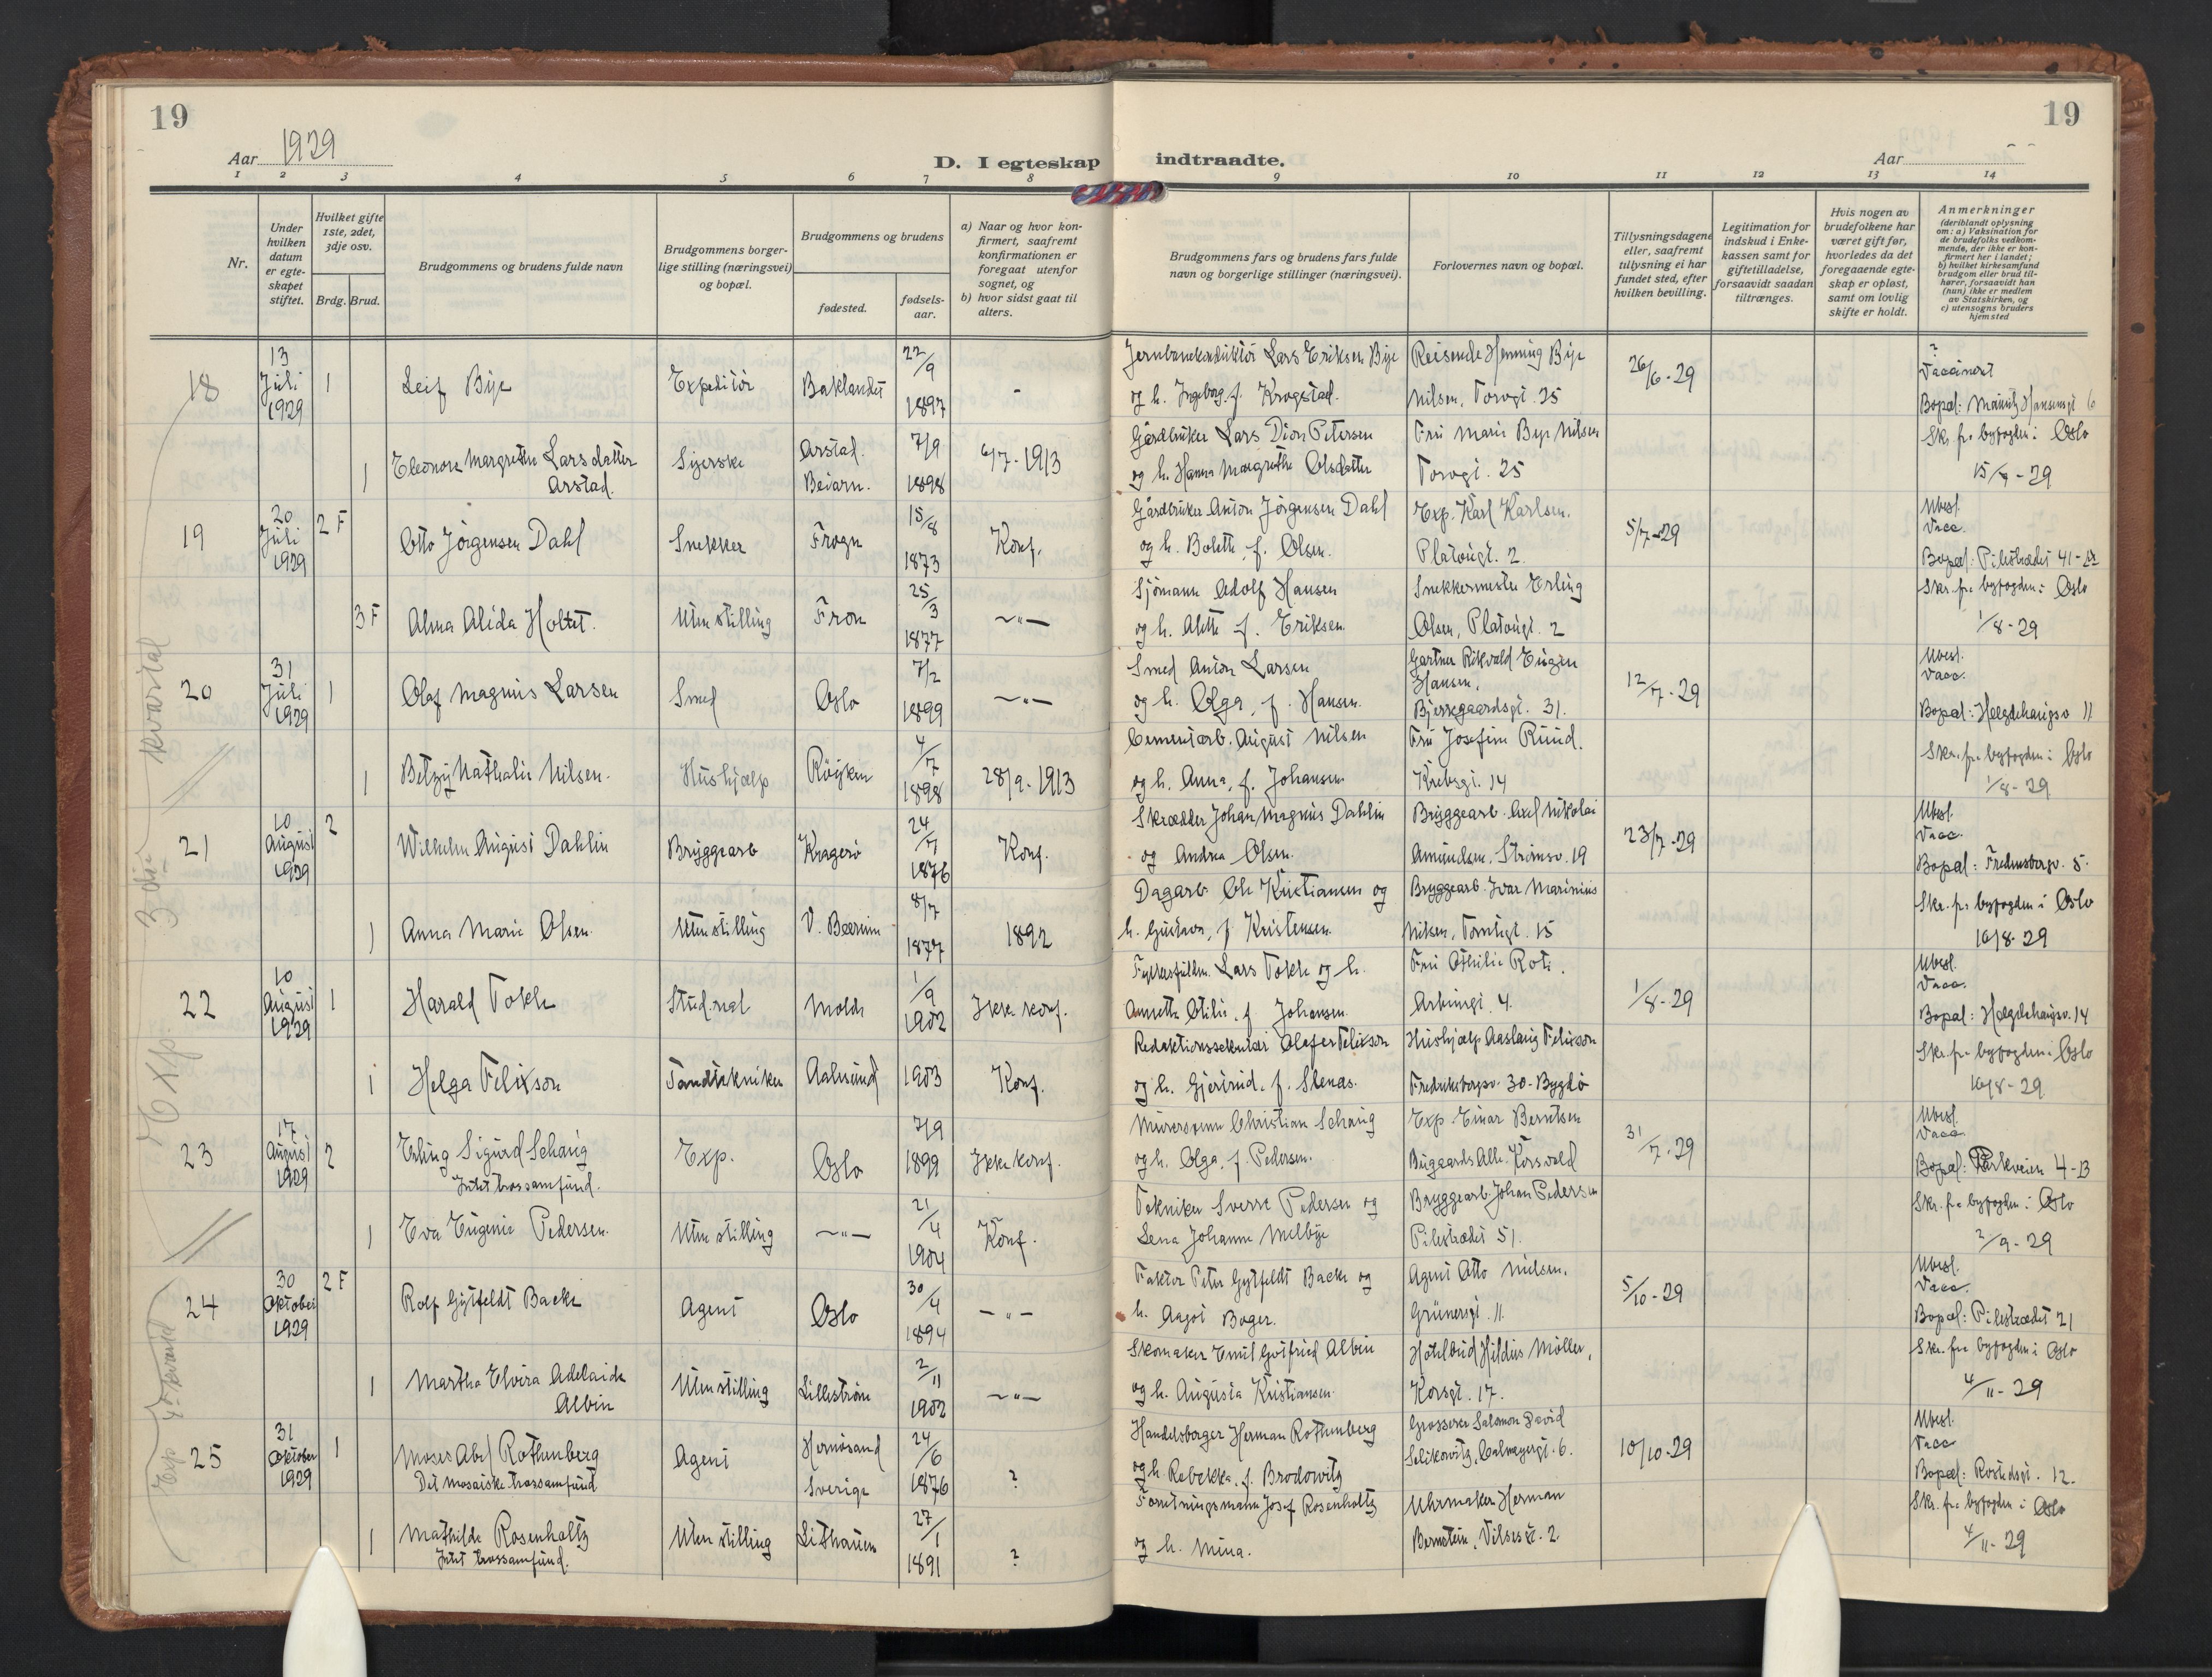 19
19
Aar 1929
D. I egteskap indtraadte.
Aar
1 2 3 4 5 6 7 8 9 10 11 12 13 14
Nr.
Under hvilken datum er egteskapet stiftet.
Hvilket gifte 1ste, 2det, 3dje osv.
Brdg. Brud.
Brudgommens og brudens fulde navn
Brudgommens borgerlige stilling (næringsvei) og bopæl.
Brudgommens og brudens
fødested.
fødselsaar.
a) Naar og hvor konfirmert, saafremt konfirmationen er foregaat utenfor sognet, og
b) hvor sidst gaat til alters.
Brudgommens fars og brudens fars fulde navn og borgerlige stillinger (næringsvei).
Forlovernes navn og bopæl.
Tillysningsdagene eller, saafremt tillysning ei har fundet sted, efter hvilken bevilling.
Legitimation for indskud i Enkekassen samt for giftetilladelse, forsaavidt saadan tiltrænges.
Hvis nogen av brudefolkene har været gift før, hvorledes da det foregaaende egteskap er opløst, samt om lovlig skifte er holdt.
Anmerkninger
(deriblandt oplysning om: a) Vaksination for de brudefolks vedkommende, der ikke er konfirmert her i landet; b) hvilket kirkesamfund brudgom eller brud tilhører, forsaavidt han (hun) ikke er medlem av Statskirken, og c) utensogns bruders hjemsted
18 13 Juli 1929 1 Leif Bye Expeditör Baklandet 22/9 1897 -
Lars Eriksen Bye og h. Ingeborg f. Krogstad.
Reisende Henning Bye Nilsen, Torvgt. 25
26/6-29
?
Vaccinert
Bopæl:
1 Eleonora Margrethe Larsdatter Arstad. Syerske Arstad. Beiarn. 7/9 1898 6/7-1913
Gårdbruker Lars Dion Petersen og h. Hanna Margrethe Olsdatter
Fru Marie Bye Nilsen Torvgt. 25
Skr. fra byfogden i Oslo
19 20 Juli 1929 2 F Otto Jörgensen Dahl Snekker Frogn 15/8 1873 Konf.
Gårdbruker Anton Jörgensen Dahl og h. Bolette, f. Olsen.
Exp. Karl Karlsen. Platougt. 2.
5/7-29
Ubesl.
Vacc.
Bopæl: Pilestrædet
3 F Alma Alida Holtet. Uten stilling Fron 25/3 1877 -"-
Sjömann Adolf Hansen og h. Alette f. Eriksen.
Snekkermester Erling Olsen, Platougt. 2
Skr. fra byfogden i Oslo
1/8-29
20 31 Juli 1929 1 Olaf Magnus Larsen Smed Oslo 7/2 1899 -"-
Smed Anton Larsen og h. Olga, f. Hansen.
Gartner Rikvald Eugen Hansen, Bjerregaardsgt. 31.
12/7-29
Ubesl.
Vacc.
Bopæl: Hegdehaugsv 11
1 Betzy Nathalie Nilsen. Hushjælp Röyken 4/7 1898 28/9-1913
Cementarb. August Nilsen og h. Anna, f. Johansen
Fru Josefine Ruud. Krebsgt. 14
Skr. fra byfogden i Oslo
1/8-29
21 10 August 1929 2 Wilhelm August Dahlin Bryggearb Kragerö 24/7 1876 Konf.
Skrædder Johan Magnus Dahlin og Andrea Olsen.
Bryggearb. Axel Nikolai Amundsen, Strömsv. 19
23/7-29
Ubesl.
Vacc.
Bopæl: Fredensborgv. 5.
1 Anna Marie Olsen. Uten stilling V. Bærum 8/7 1877 1892
Dagarb. Ole Kristiansen og h. Gustava, f. Kristensen.
Bryggearb. Ivar Marinius Nilsen, Tomtegt. 15
Skr. fra byfogden i Oslo
10/8-29
22 10 August 1929 1 Harald Tokle Stud. real Molde 1/9 1902 Ikke konf.
Lars Tokle og h. Annette Otilie, f. Johansen.
Fru Othilie Arbinsgt. 4.
1/8-29
Ubesl.
Vacc.
Bopæl: Hegdehaugsv. 14
1 Helga Felixson Tandtekniker Aalesund 1903 Konf.
Redaktionssekretær Olafer Felixson og h. Gjertrud, f. Stenås.
Hushjælp Aaslaug Felixson Fredriksborgv. 30-Bygdö
Skr. fra byfogden i Oslo
10/8-29
23 17 August 1929 2 Erling Sigurd Schaug Intet trossamfund. Exp. Oslo 7/9 1899 Ikke konf.
Murersvenn Christian Schaug og h. Olga, f. Pedersen.
Exp. Einar Berntsen
31/7-29
Ubesl.
Vacc.
Bopæl: Parkveien 4-B
1 Eva Eugenie Pedersen. Uten stilling -"- 21/4 1904 Konf.
Tekniker Sverre Pedersen og Lena Johanne Melbye
Bryggearb Johan Pedersen Pilestrædet 51.
Skr. fra byfogden i Oslo
2/9-29
24 30 Oktober 1929 2 F Rolf Gyltfeldt Backe Agent Oslo 30/4 1894 -"-
Faktor Peter Gyltfeldt Backe og h. Aagot Boger.
Agent Otto Nielsen. Grünersgt. 11
5/10-29
Ubesl.
Vacc.
Bopæl: Pilestrædet 21
1 Martha Elvira Adelaide Albin Uten stilling Lilleström 2/11 1902 -"-
Skomaker Emil Gotfried Albin og h. Augusta Kristiansen
Hotelbud Hildus Möller, Korsgt. 17.
Skr. fra byfogden i Oslo
4/11-29
25 31 Oktober 1929 1 Moses Abel Rothenberg Det mosaiske trossamfund Agent Hernösand Sverige 24/6 1876 ?
Handelsborger Herman Rothenberg og h. Rebekka, f. Brodowitz
Grosserer Salomon David Selikowitz, Calmeyersgt. 6.
10/10-29
Ubesl.
Vacc
Bopæl: Rostedsgt. 12.
1 Mathilde Rosenholtz Intet trossamfund. Uten stilling Lithauen 27/1 1891 ?
Forretningsmann Josef Rosenholtz og h. Mina.
Uhrmaker Herman Bernstein, Vilsesgt. 2.
Skr. fra byfogden i Oslo
4/11-29
Exp. 3die kvartal
Exp 4. kvartal